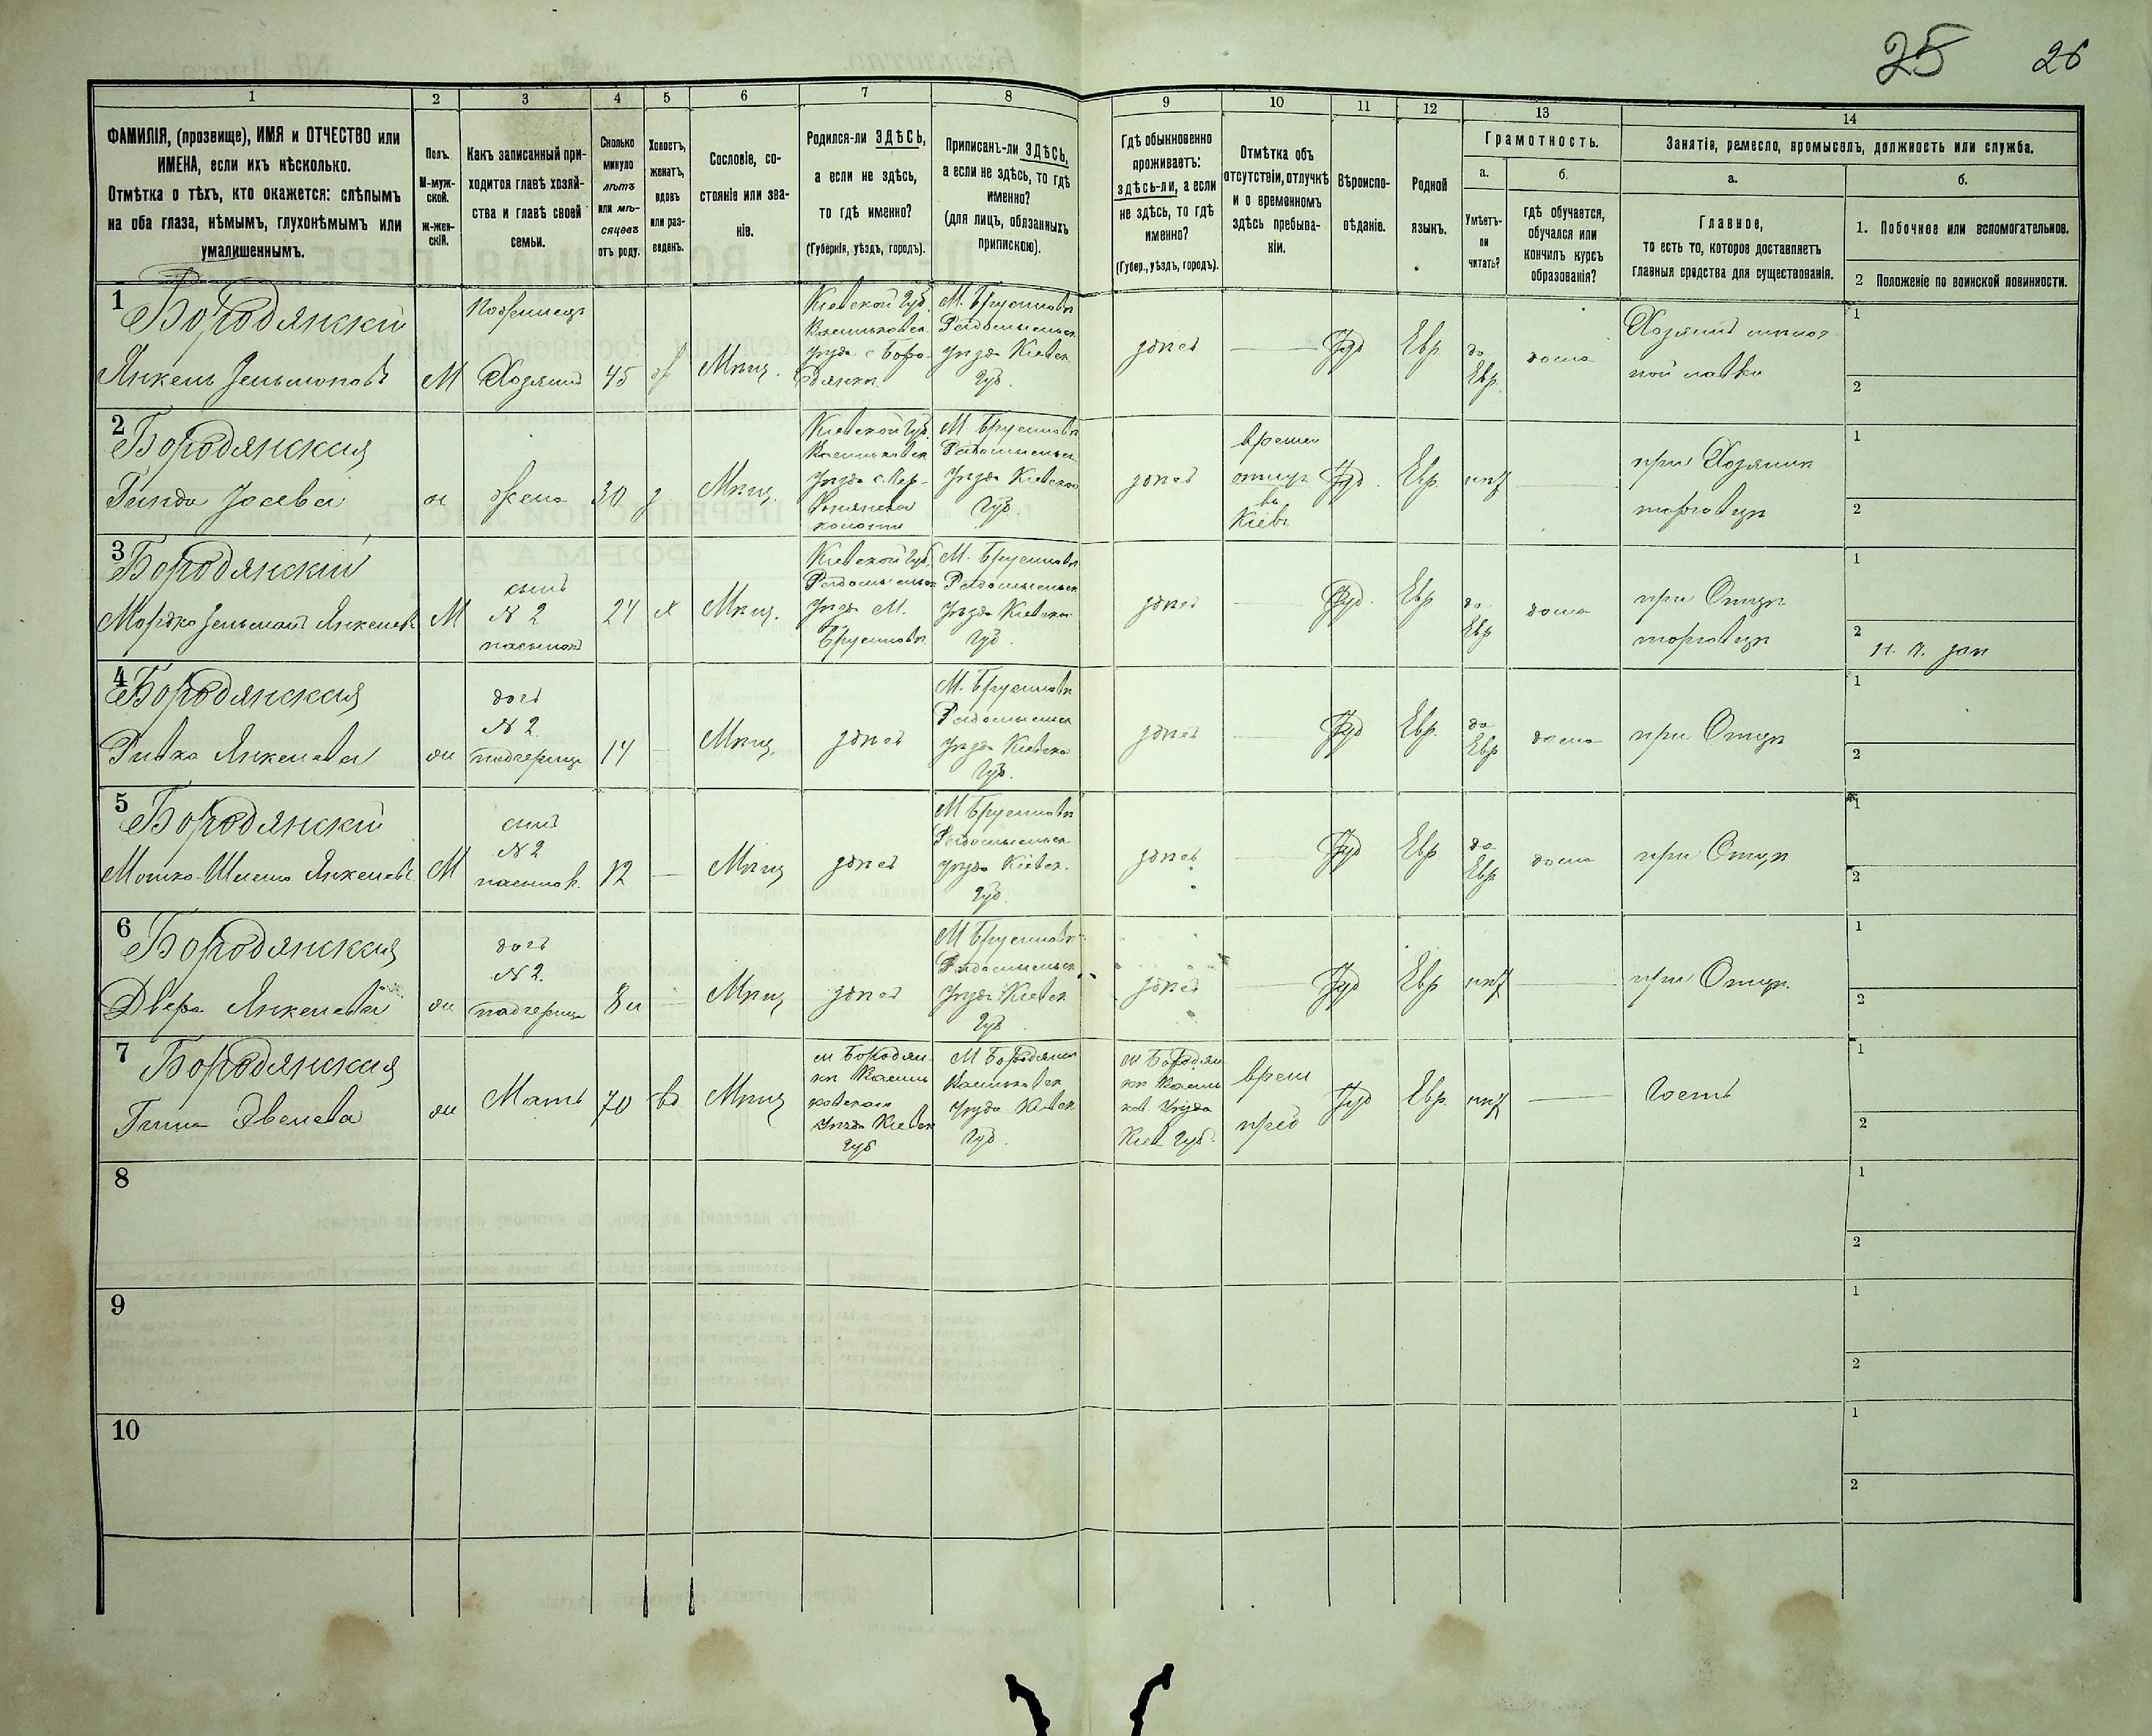 25 26
1 2 3 4 5 6 7 8 9 10 11 12 13 14
ФАМИЛІЯ, (прозвище), ИМЯ и ОТЧЕСТВО или
ИМЕНА, если ихъ нѣсколько.
Отмѣтка о тѣхъ, кто окажется: слѣпымъ
на оба глаза, нѣмымъ, глухонѣмымъ или
умалишеннымъ.
Полъ.
М-муж-
ской.
ж-жен-
скій.
Какъ записанный при-
ходится главѣ хозяй-
ства и главѣ своей
семьи.
Сколько
минуло
лѣтъ
или мѣ-
сяцевъ
отъ роду.
Холостъ,
женатъ,
вдовъ
или раз-
веденъ.
Сословіе, со-
стояніе или зва-
ніе.
Родился-ли ЗДѢСЬ,
а если не здѣсь,
то гдѣ именно?
(Губернія, уѣздъ, городъ).
Приписанъ-ли ЗДѢСЬ,
а если не здѣсь, то гдѣ
именно?
(для лицъ, обязанныхъ
припискою).
Гдѣ обыкновенно
проживаетъ:
здѣсь-ли, а если
не здѣсь, то гдѣ
именно?
(Губер., уѣздъ, городъ).
Отмѣтка объ
отсутствіи, отлучкѣ
и о временномъ
здѣсь пребыва-
ніи.
Вѣроиспо-
вѣданіе.
Родной
языкъ.
Грамотность.
а.
Умѣетъ-
ли
читать?
б.
гдѣ обучается,
обучался или
кончилъ курсъ
образованія?
Занятія, ремесло, промыселъ, должность или служба.
а.
Главное,
то есть то, которое доставляетъ
главныя средства для существованія.
б.
1. Побочное или вспомогательное.
2 Положеніе по воинской повинности.
1
Бородянскій
Янкель Зельмановъ
М
Хозяинъ
45
Мѣщ.
Кіевской Губ.
Васильковск.
уѣзда с Боро-
дянки
М. Брусиловъ
Радомысльск.
уѣзда Кіевск.
Губ.
здѣсь
Іуд
Евр
да
Евр.
дома
Хозяинъ
ной лавки
1
2
2
Бородянская
Гинда
ж
жена
30
з
Мѣщ.
Кіевской Губ.
Васильковск
уѣзда
М. Брусиловъ
Радомысльск.
уѣзда Кіевской
Губ.
здѣсь
времен
отлуч
въ
Кіевъ
Іуд.
Евр.
нѣт
при Хозяинѣ
торговцѣ
1
2
3
Бородянскій
Мордко Зельманъ Янкелев
М
сынъ
№ 2
пасынокъ
24
х
Мѣщ.
Кіевской Губ.
Радомысльск
уѣзда М.
Брусиловъ
М. Брусиловъ
Радомысльск
уѣзда Кіевско
Губ.
здѣсь
Іуд.
Евр
да
Евр
дома
при Отцѣ
торговцѣ
1
2
4
Бородянская
Ривка Янкелева
ж
дочь
№ 2.
падчерица
14
Мѣщ.
здѣсь
М. Брусиловъ
Радомысльск
уѣзда Кіевско
Губ.
здѣсь
Іуд
Евр.
да
Евр
дома
при Отцѣ
1
2
5
Бородянскій
Мошко-Шлема Янкелевъ
М
сынъ
№ 2
пасынок.
12
Мѣщ
здѣсь
М Брусиловъ
Радомысльск
уѣзда Кіевск.
Губ.
здѣсь
Іуд
Евр
да
Евр
дома
при Отцѣ
1
2
6
Бородянская
Двера Янкелева
ж
дочь
№ 2.
падчерица
Мѣщ
здѣсь
М Брусиловъ
Радомысльск
уѣзда Кіевск
Губ
здѣсь
Іуд
Евр
нѣт
при Отцѣ.
1
2
7
Бородянская
ж
Мать
70
вд
Мѣщ
м Бородян-
ки Василь
ковскаго
уѣзда Кіевск
Губ
М Бородянки
Васильковск
уѣзда Кіевск
Губ.
м Бородян
ки Василь
ков. Уѣзда
Кіев Губ.
врем
преб
Іуд
Евр.
нѣт
Гость
1
2
8
1
2
9
1
2
10
1
2